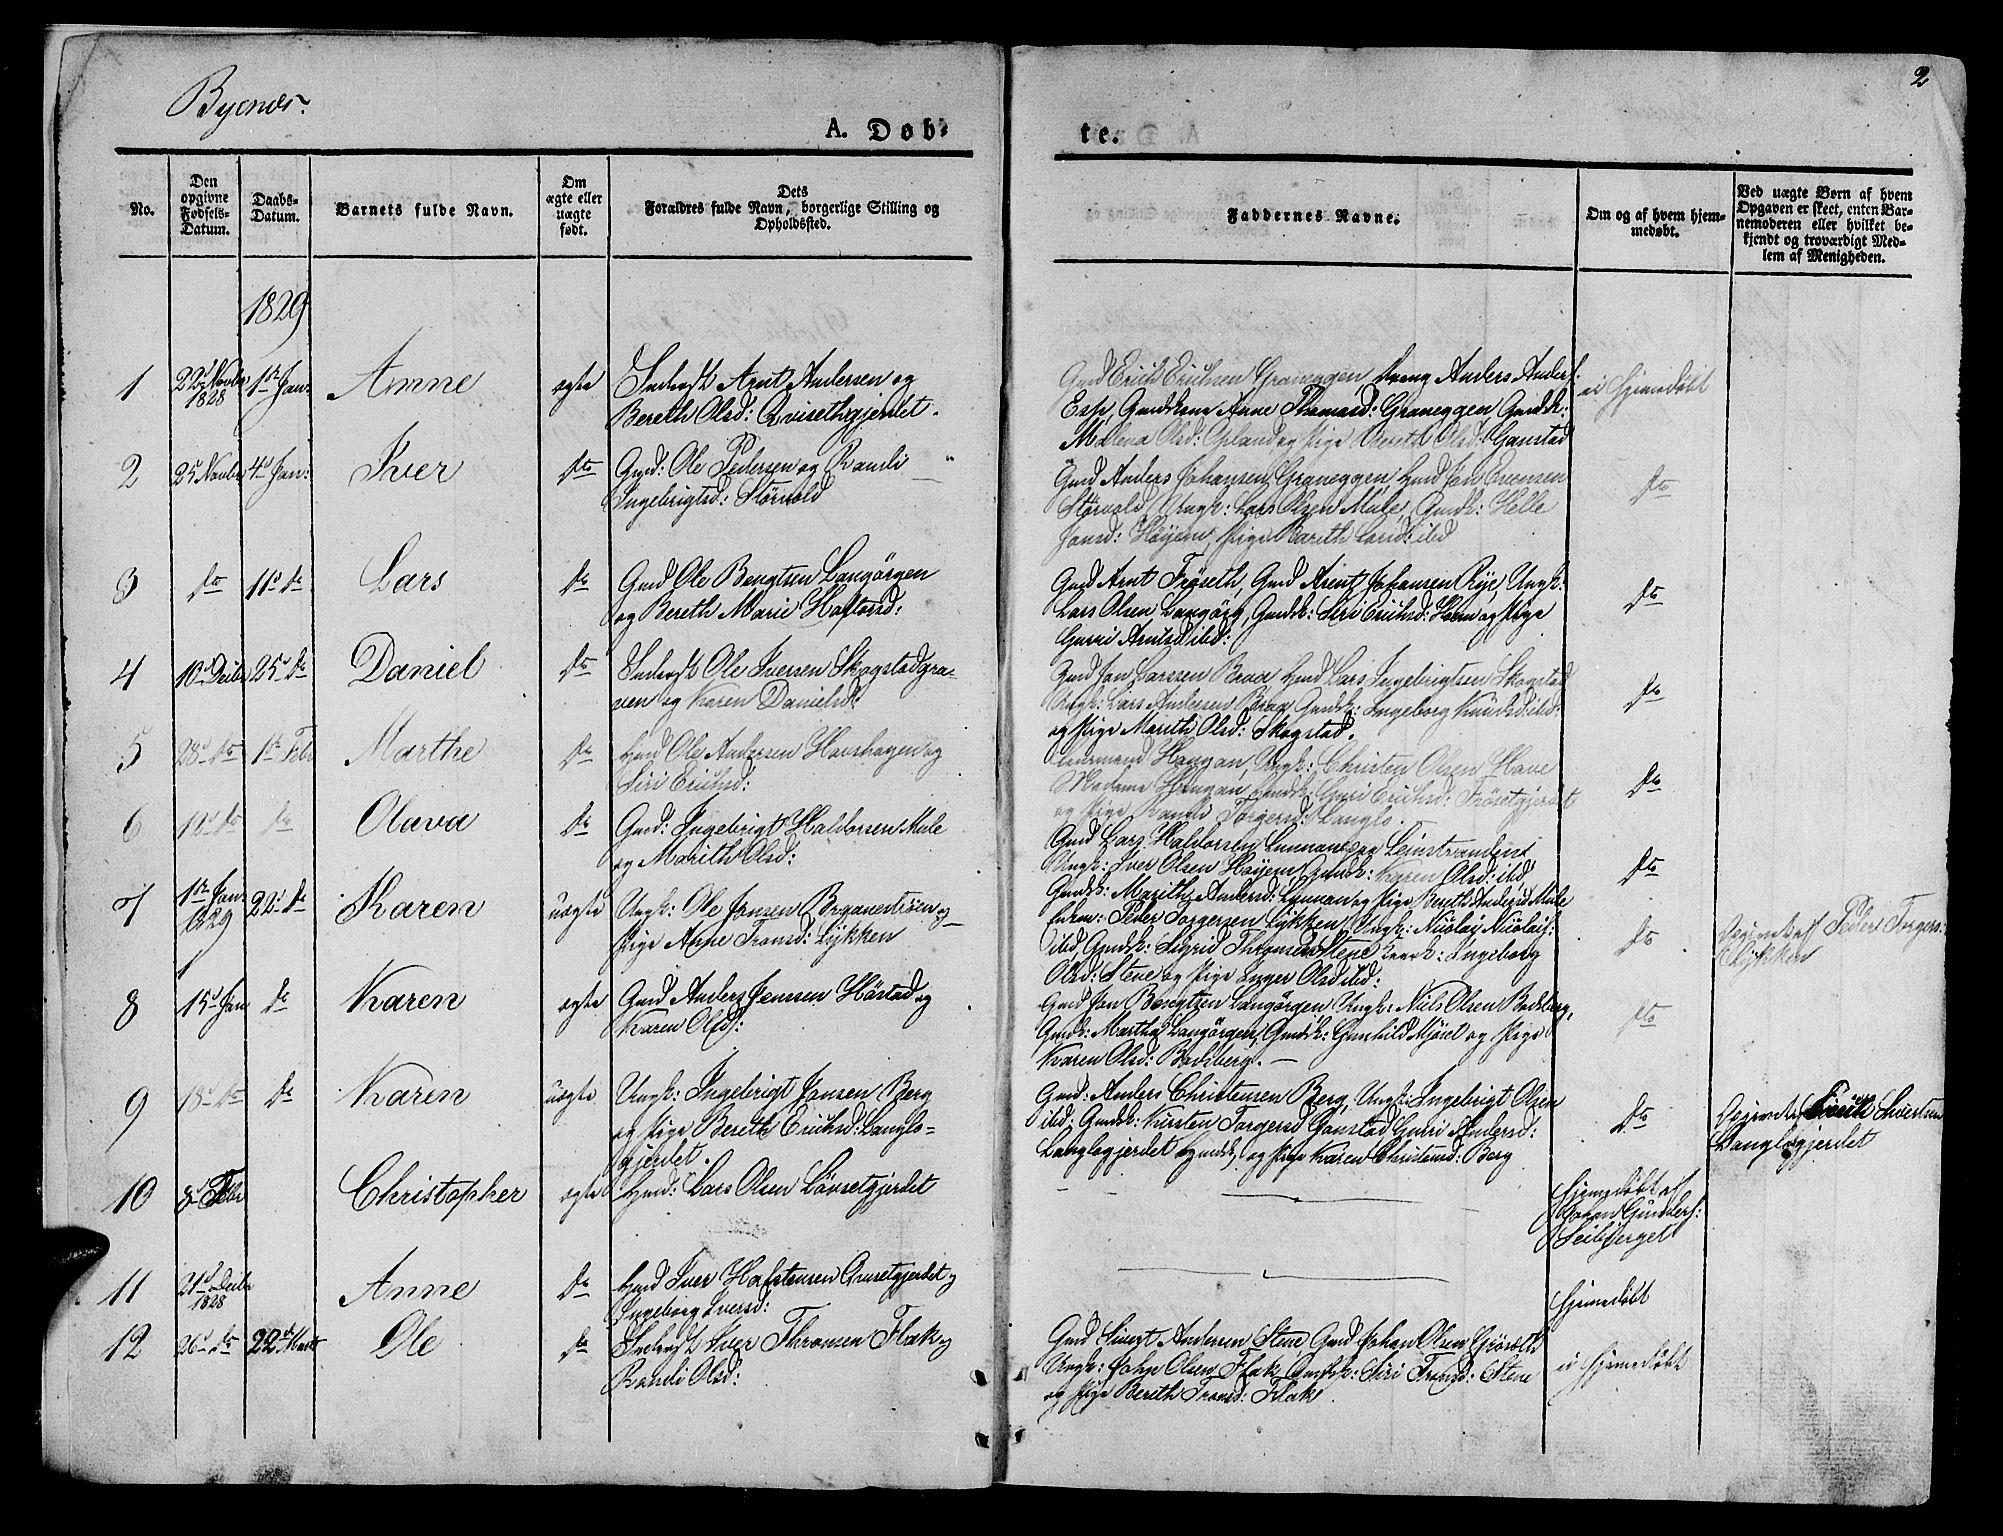 Byenes.
2
A. Døb-
te.
No.
Den opgivne Fødsels-Datum.
Daabs-Datum.
Barnets fulde Navn.
Om ægte eller uægte født.
Dets Forældres fulde Navn, borgerlige Stilling og Opholdssted.
Faddernes Navne.
Om og af hvem hjem-medøbt.
Ved uægte Børn af hvem Opgaven er skeet, enten Bar-nemoderen eller hvilket be-kjendt og troværdigt Med-lem af Menigheden.
1829
1 22d Novbr 1828 1ste Jan: Anne ægte Andersen og
Bereth Olsd: Qvisethgjerdet.
Gmd Erich Erichsen Graneggen, Anders Anders:
Esp, Gmdkone Anne Thomasd: Graneggen Gmdk:
Malena Olsd: Opland og Pige Bereth Olsd: Ganstad
ei Hjemedøbt
2 25 Novbr 4d Jan: Iver dto Gmd: Ole Pedersen og Randi
Ingebrigtsd: Størvold
Gmd Anders Johansen Graneggen, Hmd Jon
Størvold Ungk: Lars Olsen Mule, Gmdk: Helle
Jonsd: Høyem, Pige Marith Larsd: ibd
dto
3 do 11d do Lars do Gmd Ole Bengtsen Langørgen
og Bereth Marie Haftorsd:
Gmd Arnt Frøseth, Gmd Arent Johansen Rye, Ungk:
Lars Olsen Langørg, Gmdk: Siri Erichsd: Hem og Pige
Gurri Arntsd ibd:
dto
4 10d Decbr 25d do Daniel do Ole Iversen Skogstadgra-
ven og Karen Danielsd:
Gmd Jon Larssen Braa Hmd Lars Ingebrigtsen Skogstad
Ungk: Lars Andersen Braa Gmdk: Ingeborg ibd:
og Pige Marith Olsd: Skogstad.
do
5 28d do 1ste Febr Marthe do Hmd Ole Andersen Havshagen og
Siri Erichsd:
Haugan, Ungk: Christen Olsen Have
Madame Haugan, Gmdk: Guri Erichsd: Frøsetgjerdet
og Pige Randi Torgersd: Langlo.
do
6 12d do do Olava do Gmd: Ingebrigt Haldorsen Mule
og Marith Olsd:
Gmd Lars Haldorsen Leinstranden,
Ungk: Iver Olsen Høyem, Gmdk: Karen Olsd: ibd,
Gmdk: Marith Andersd: og Pige Bereth Andersd Mule
dto
7 1ste Jan: 1829 22d do Karen uægte Ungk: Ole Jonsen og
Pige Anne Tronsd: Lykken
Peder Torgersen Lykken, Ungk: Nicolay Nicolais:
ibd, Gmdk: Sigrid Thronsd Stene Ingeborg
Olsd: Stene og Pige Inger Olsd ibd:
do
Opgivet af Peder Torgers:
Lykken
8 15d Jan do Karen ægte Gmd Anders Jenssen Høstad og
Karen Olsd:
Gmd Jon Bengtsen Langørgen, Ungk: Niels Olsen Bodsberg,
Gmdk: Martha Langørgen, Gmdk: Gunhild og Pige
Karen Olsd: Bodsberg.
dto
9 18d do do Karen uægte Ungk: Ingebrigt Jonsen Berg
og Pige Bereth Erichsd: Langlo-
gjerdet.
Gmd: Anders Christensen Berg, Ungk: Ingebrigt Olsen
ibd: Gmdk: Kirsten Torgersd Ganstad Gurri Andersd:
Langlogjerdet Hmdsk, og Pige Karen Christensd: Berg
dto
Opgivet af Erich
Langlogjerdet
10 8d Febr Christopher ægte Hmd: Lars Olsen Løvsetgjerdet
Hjemedøbt af
Johan Gunders:
11 21d Decbr 1828 Anne do Hmd Iver Hafstensen Qvisetgjerdet og
Ingeborg Iversd:
Hjemedøbt
12 26d do 22d Marts Ole do Iver Thronsen Flak og
Randi Olsd:
Gmd Sivert Andersen Stene, Gmd Johan Olsen
Ungk: John Olsen Flak, Gmdk: Siri Tronsd: Stene
og Pige Bereth Tronsd: Flak.
ei Hjemedøbt